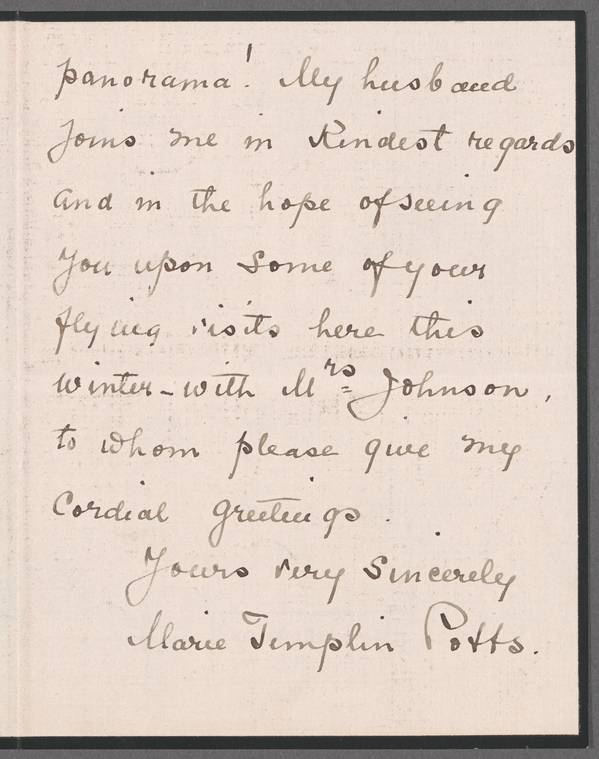 panorama! My husband
joins me in kindest regards
and in the hope of seeing
you upon some of your
flying visits here this
winter - with Mrs Johnson,
to whom please give my
cordial greetings.
Yours very sincerely
Marie Templin Potts.